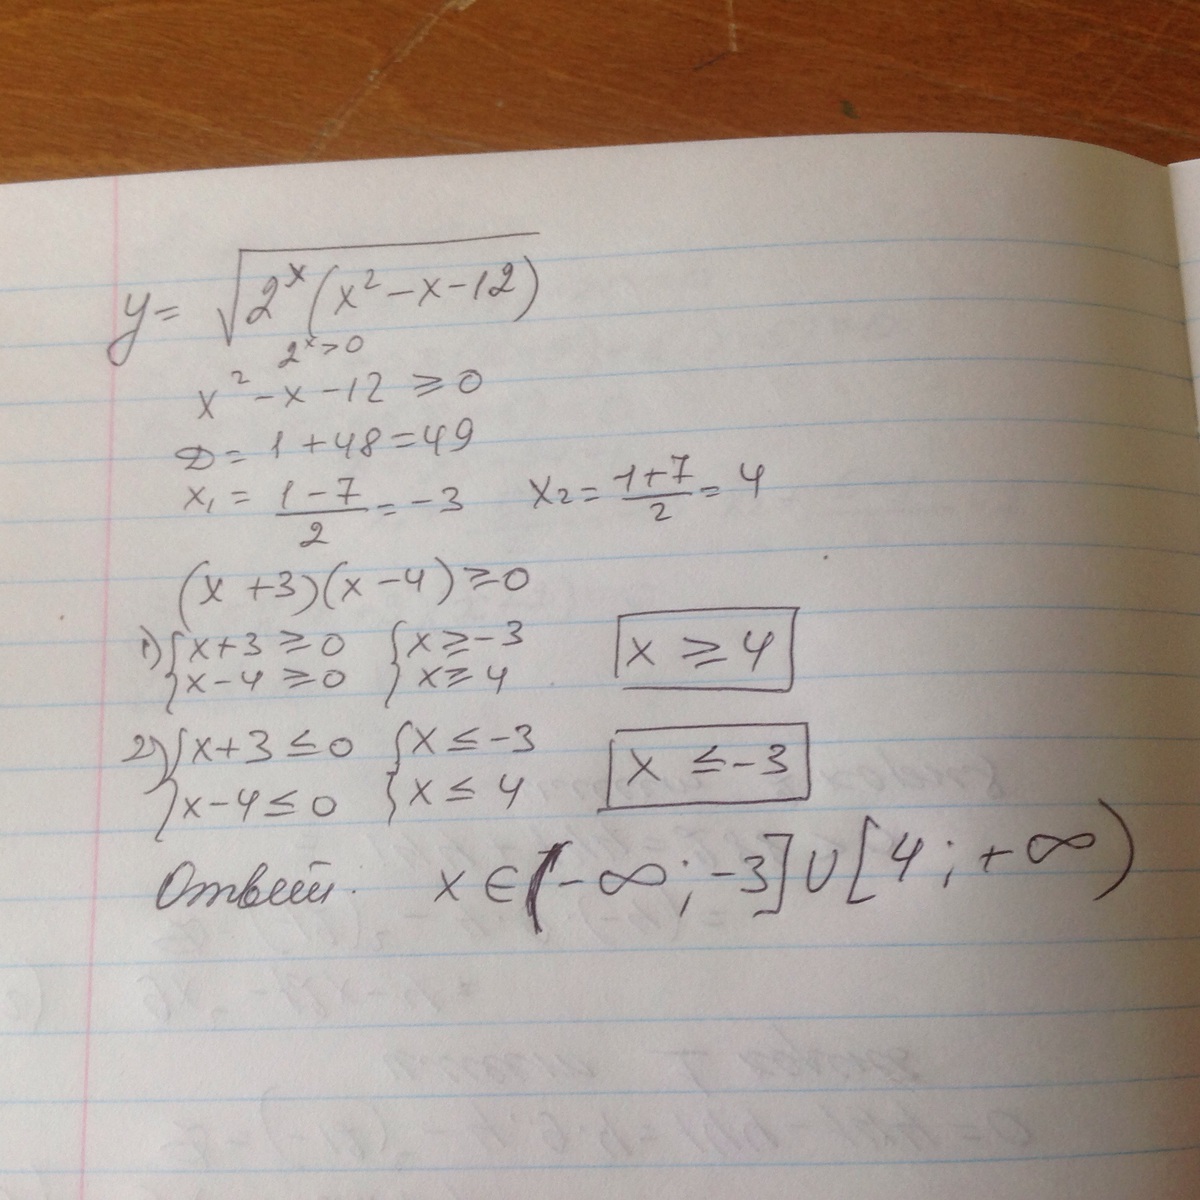 y = √(2^x (x² - x - 12))
2^x > 0
x² - x - 12 ≥ 0
D = 1 + 48 = 49
x₁ = (1 - 7)/2 = -3    x₂ = (1 + 7)/2 = 4
(x + 3)(x - 4) ≥ 0
1) { x + 3 ≥ 0    { x ≥ -3    x ≥ 4
{ x - 4 ≥ 0    { x ≥ 4
2) { x + 3 ≤ 0    { x ≤ -3    x ≤ -3
{ x - 4 ≤ 0    { x ≤ 4
Ответ: x ∈ (-∞; -3] ∪ [4; +∞)